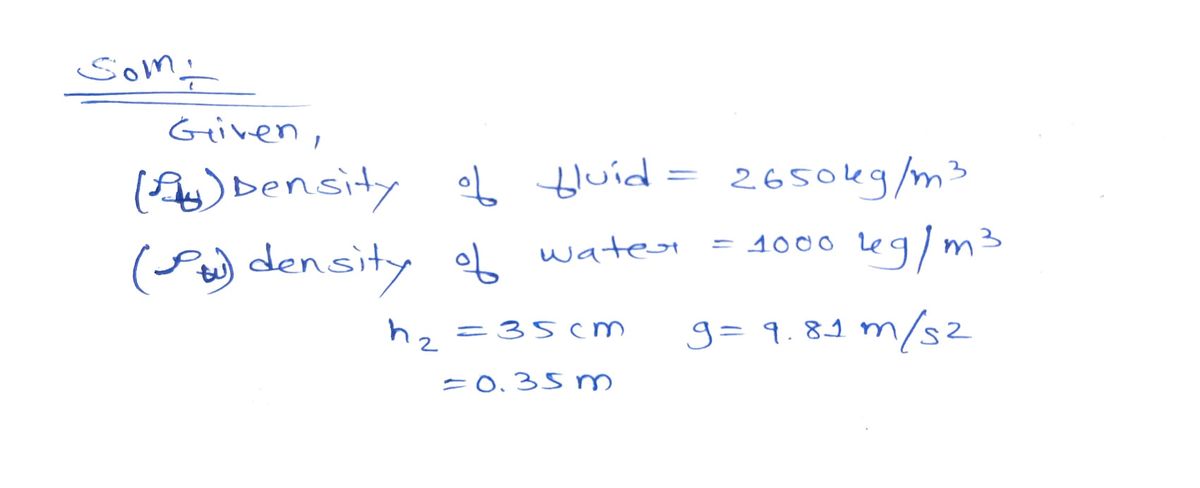 Soln:
Given,
(ρfl) Density of fluid = 2650 kg/m³
(ρw) density of water = 1000 kg/m³
h₂ = 35 cm g = 9.81 m/s2
= 0.35 m